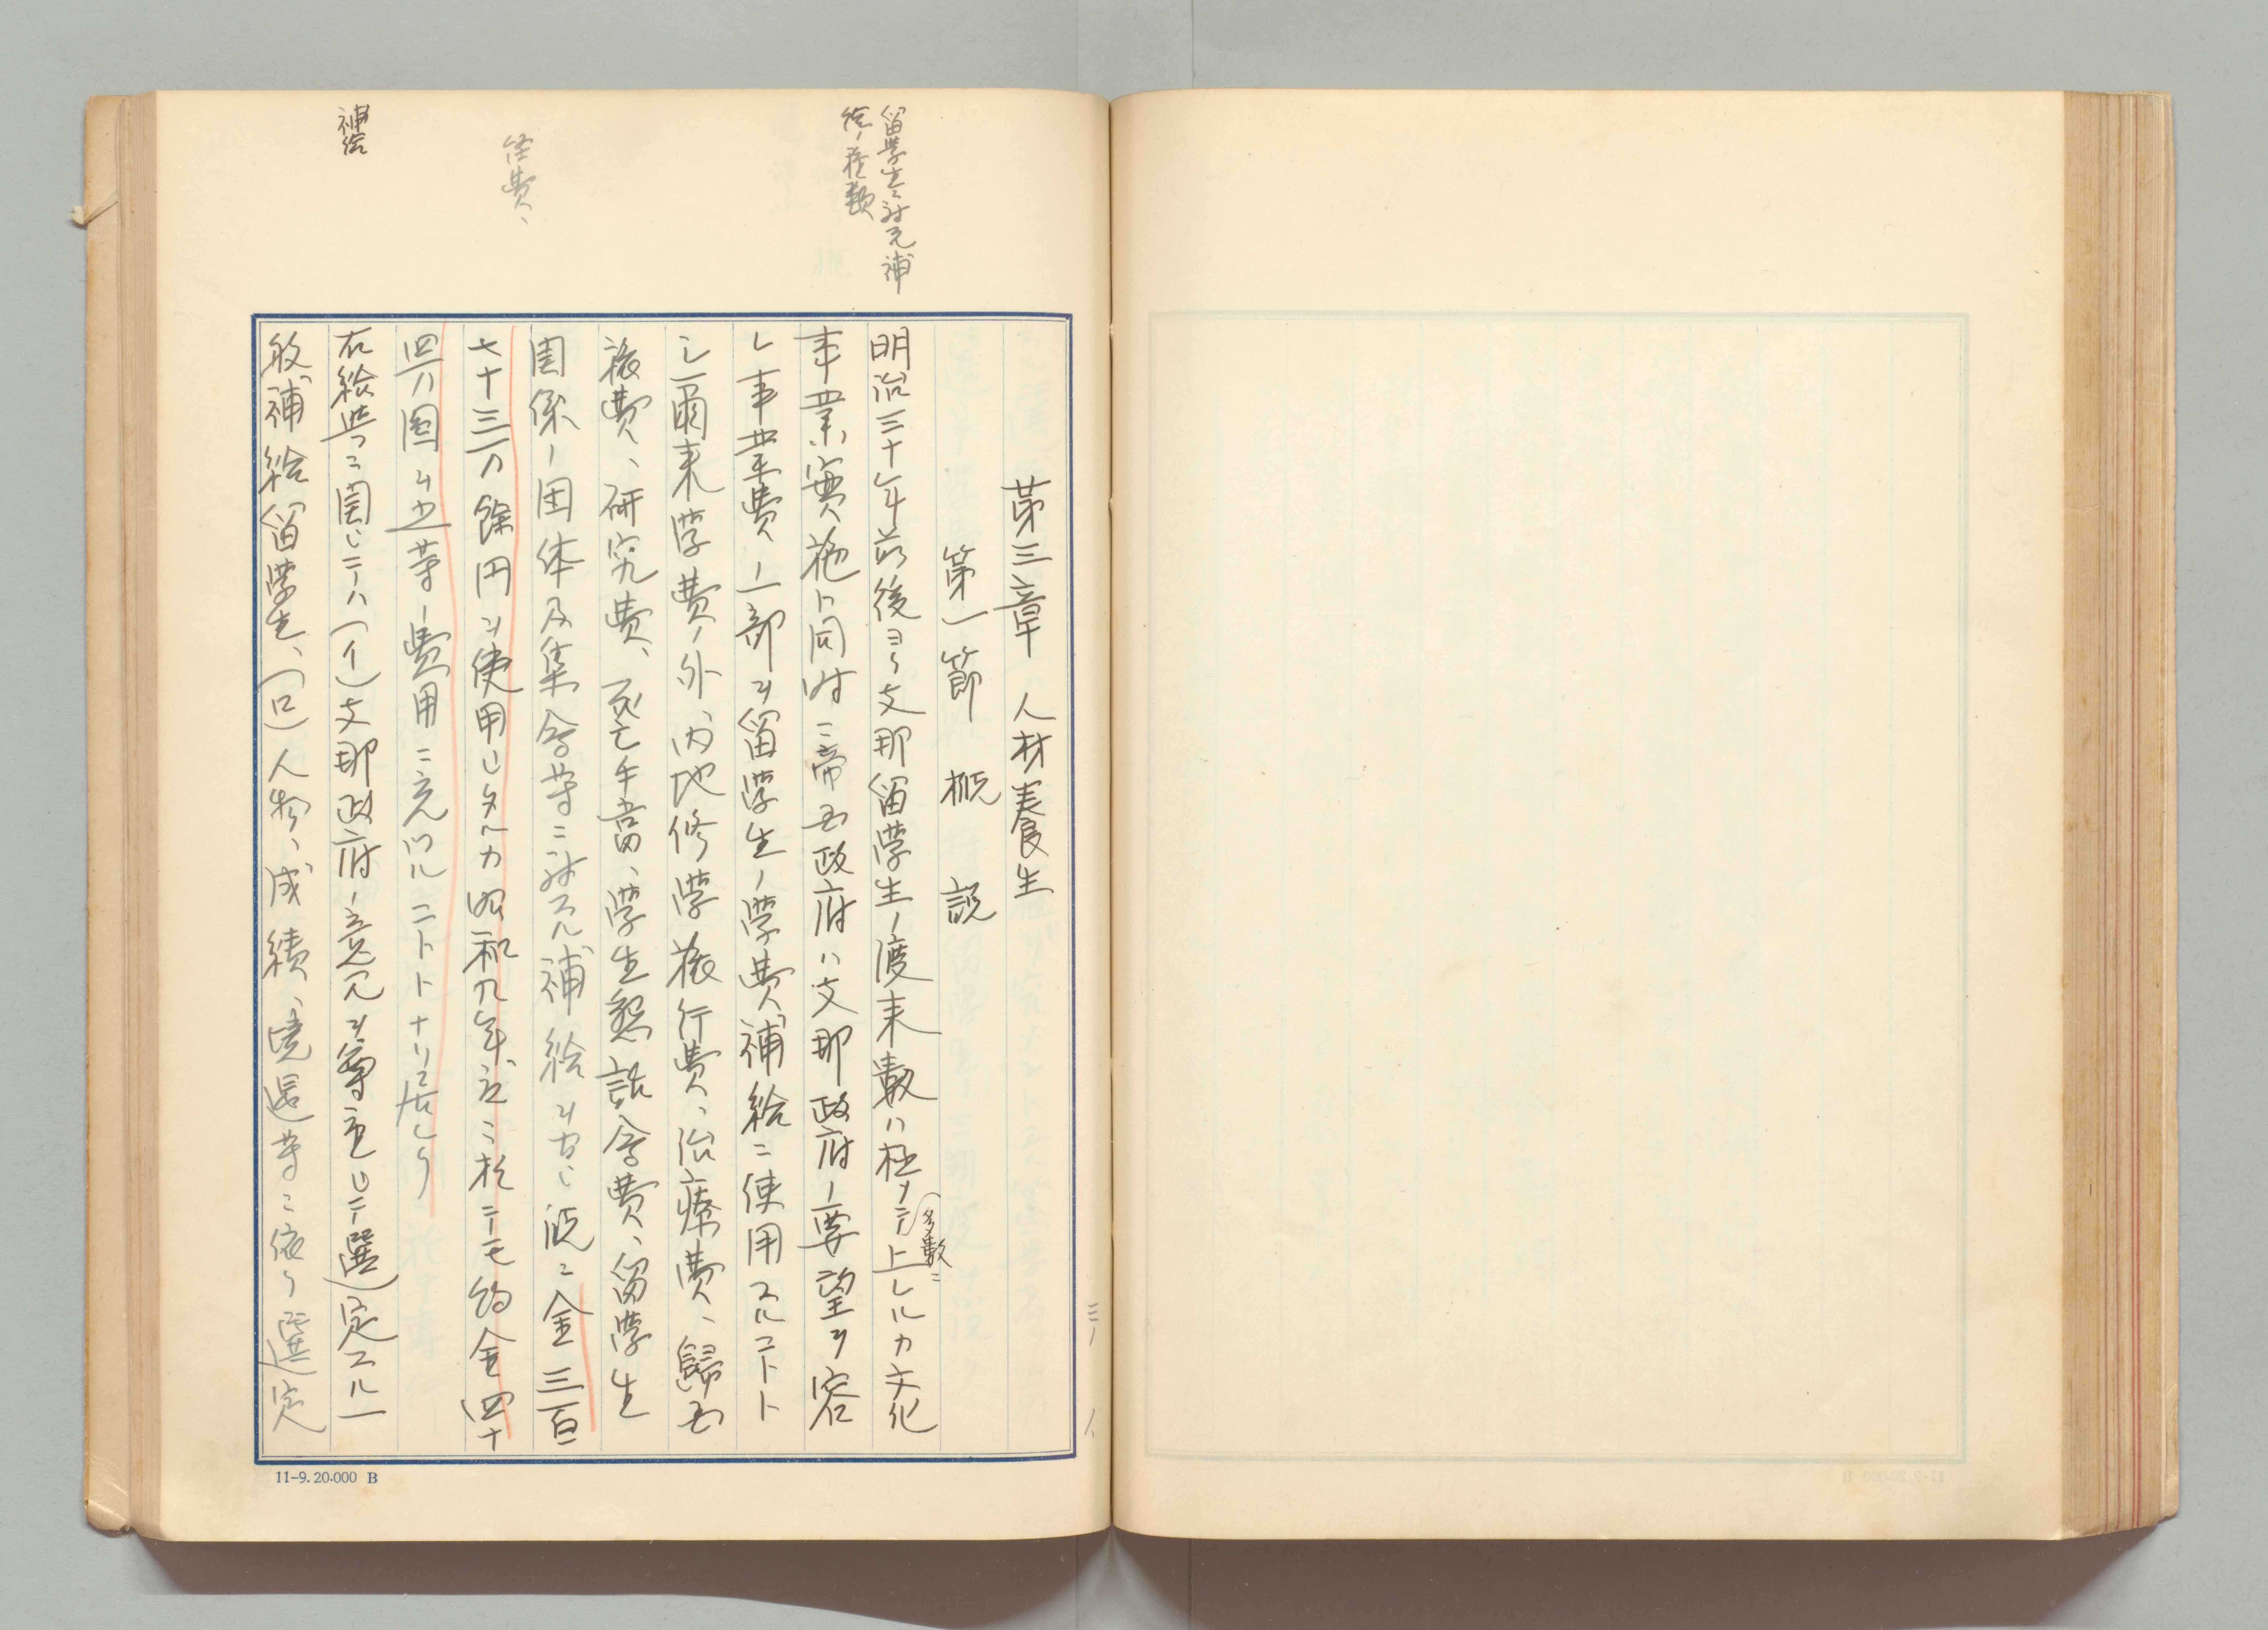 第三章 人材養生
第一節 概説
明治三十年前後ヨリ支那留学生ノ渡来数ハ極メテ多数ニ上レルカ文化
事業実施ト同時ニ帝国政府ハ支那政府ノ要望ヲ容
レ事業費ノ一部ヲ留学生ノ学費補給ニ使用スルコトト
シ爾来学費ノ外、内地修学旅行費、治療費、帰国
旅費、研究費、死亡手当、学生懇話会費、留学生
関係ノ団体及集会等ニ対スル補給ヲ為シ既ニ金三百
七十三万余円ヲ使用シタルカ昭和九年度ニ於テモ約金四十
四万円ヲ此等ノ費用ニ充ツルコトトナリ居レリ
右給与ニ関シテハ(イ)支那政府ノ意見ヲ尊重シテ選定スル一
般補給留学生、(ロ)人物、成績、境遇等ニ依リ選定
留学生ニ対スル補
給ノ種類
経費、
補給
三ノ
11-9.20.000 B